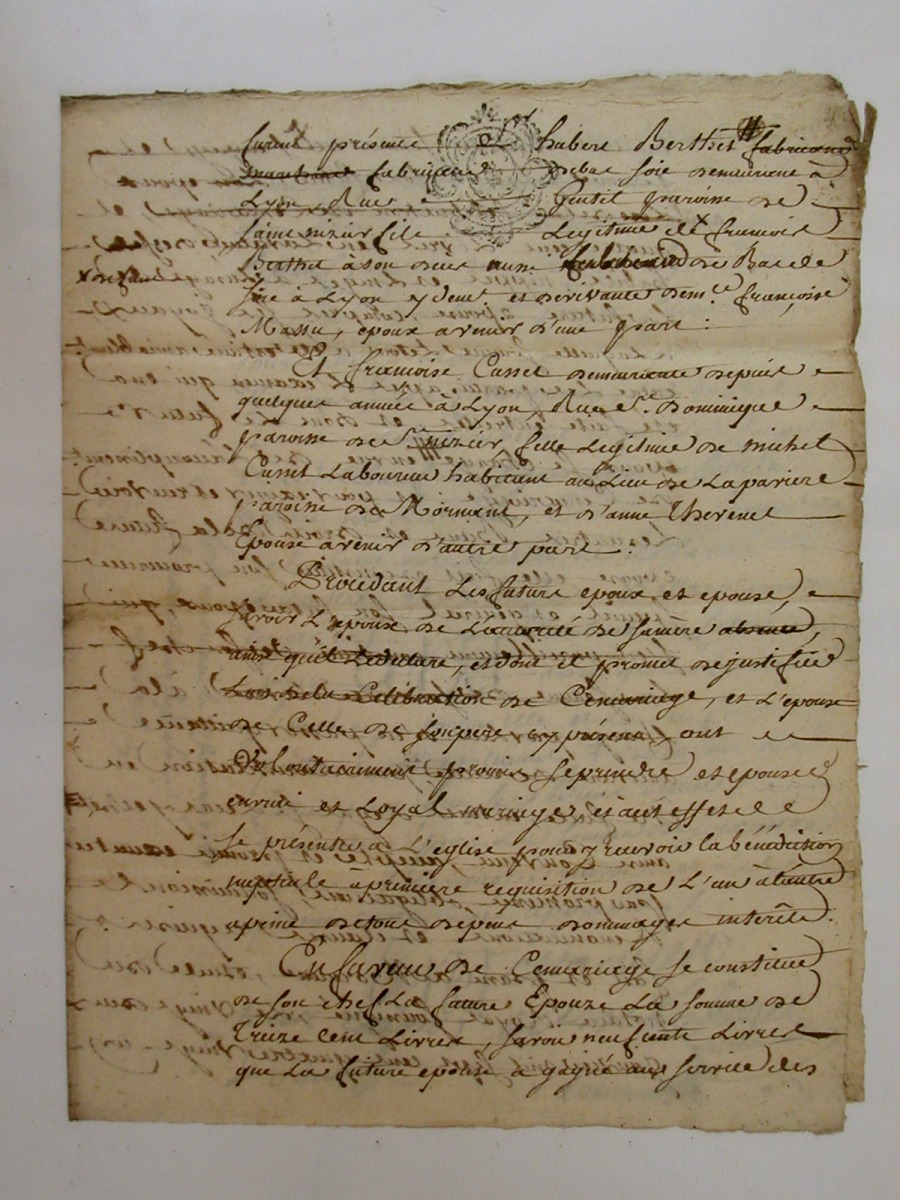 furent présents Sr hubert Berthet fabricant
marchand fabriquant debas soie demeurant à
Lyon, Rue Gentil paroisse de
saint nizier fils Legitime de francois
Berthet à son deces de Bas de
soie à Lyon y dem. et devivante dem.lle françoise
Massu, epoux avenir d'une part :
Et francoise Cusset demeurante depuis
quelques année à Lyon, Rue St. Dominique
paroisse de St. nizier, fille Legitime de michel
Cusset Laboureur habitant au Lieu de Lapariere
paroisse de Mornant, et d'anne Thevenet
Epouse avenir d'autre part :
Procédant Les future epoux et epouse,
savoir L'epoux de L'autorité de samère absente,
ainsi qu'il Ledeclare, et dont il promet dejustifier
Lors dela Celébration de Cemariage, et L'epouse
de Celle de sonpere cy présent ont
Volontairement promis seprendre et epouser
envrai et Loyal mariage, et aut effet de
se présenter à L'eglise pour y recevoir la bénédiction
nuptiale à première requisition de L'un à L'autre
apeine detous depens dommages interêts.
En faveur de Cemariage se constitue
de son chef La future Epouze La somme de
Treize Cent Livres, savoir neuf Cents Livres
que La future epouse à gagné aux service des